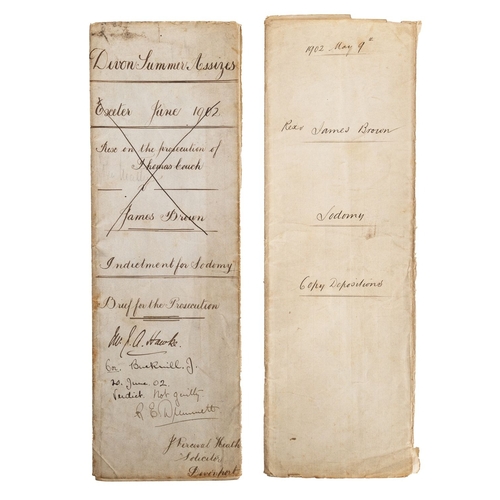 Devon Summer Assizes
Exeter June 1902
Rex on the prosecution of
Thomas Couch
v
James Brown
Indictment for Sodomy
Brief for the Prosecution
Mr J. A. Hawke
Cor. Bucknill. J.
20. June. 02.
Verdict Not guilty
J Percival Heath
Solicitor
Devonport
1902 May 9th
Rex v James Brown
Sodomy
Copy Depositions